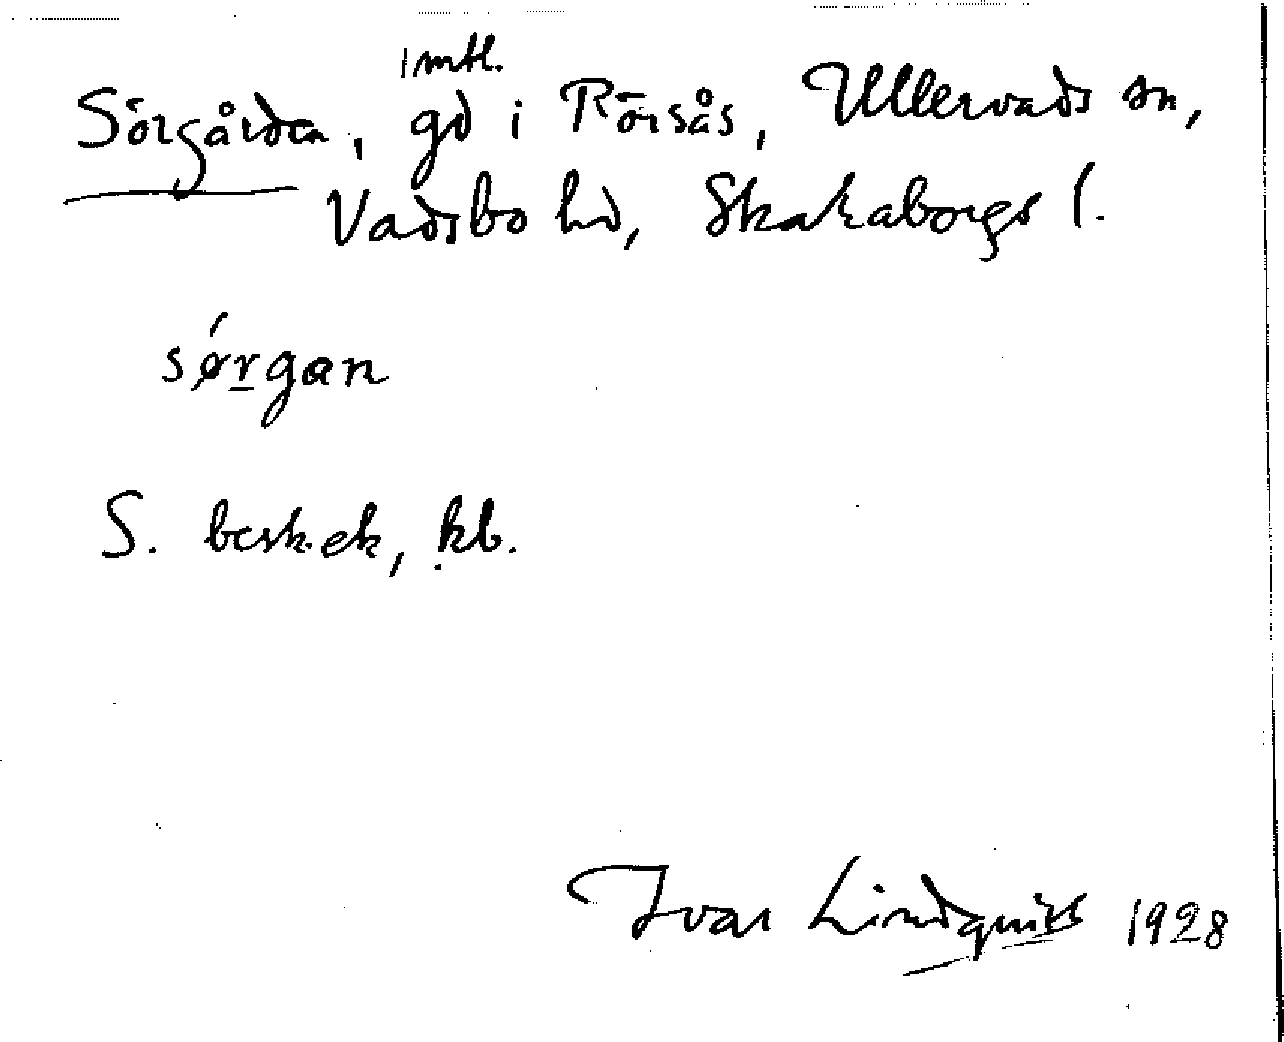 1 mtl.
Sörgården, gd i Rörsås, Ullervads sn,
Vadsbo hd, Skakaborgs l.
sǿrgan
S. besk. ek, kb.
Ivar Lindquist 1928